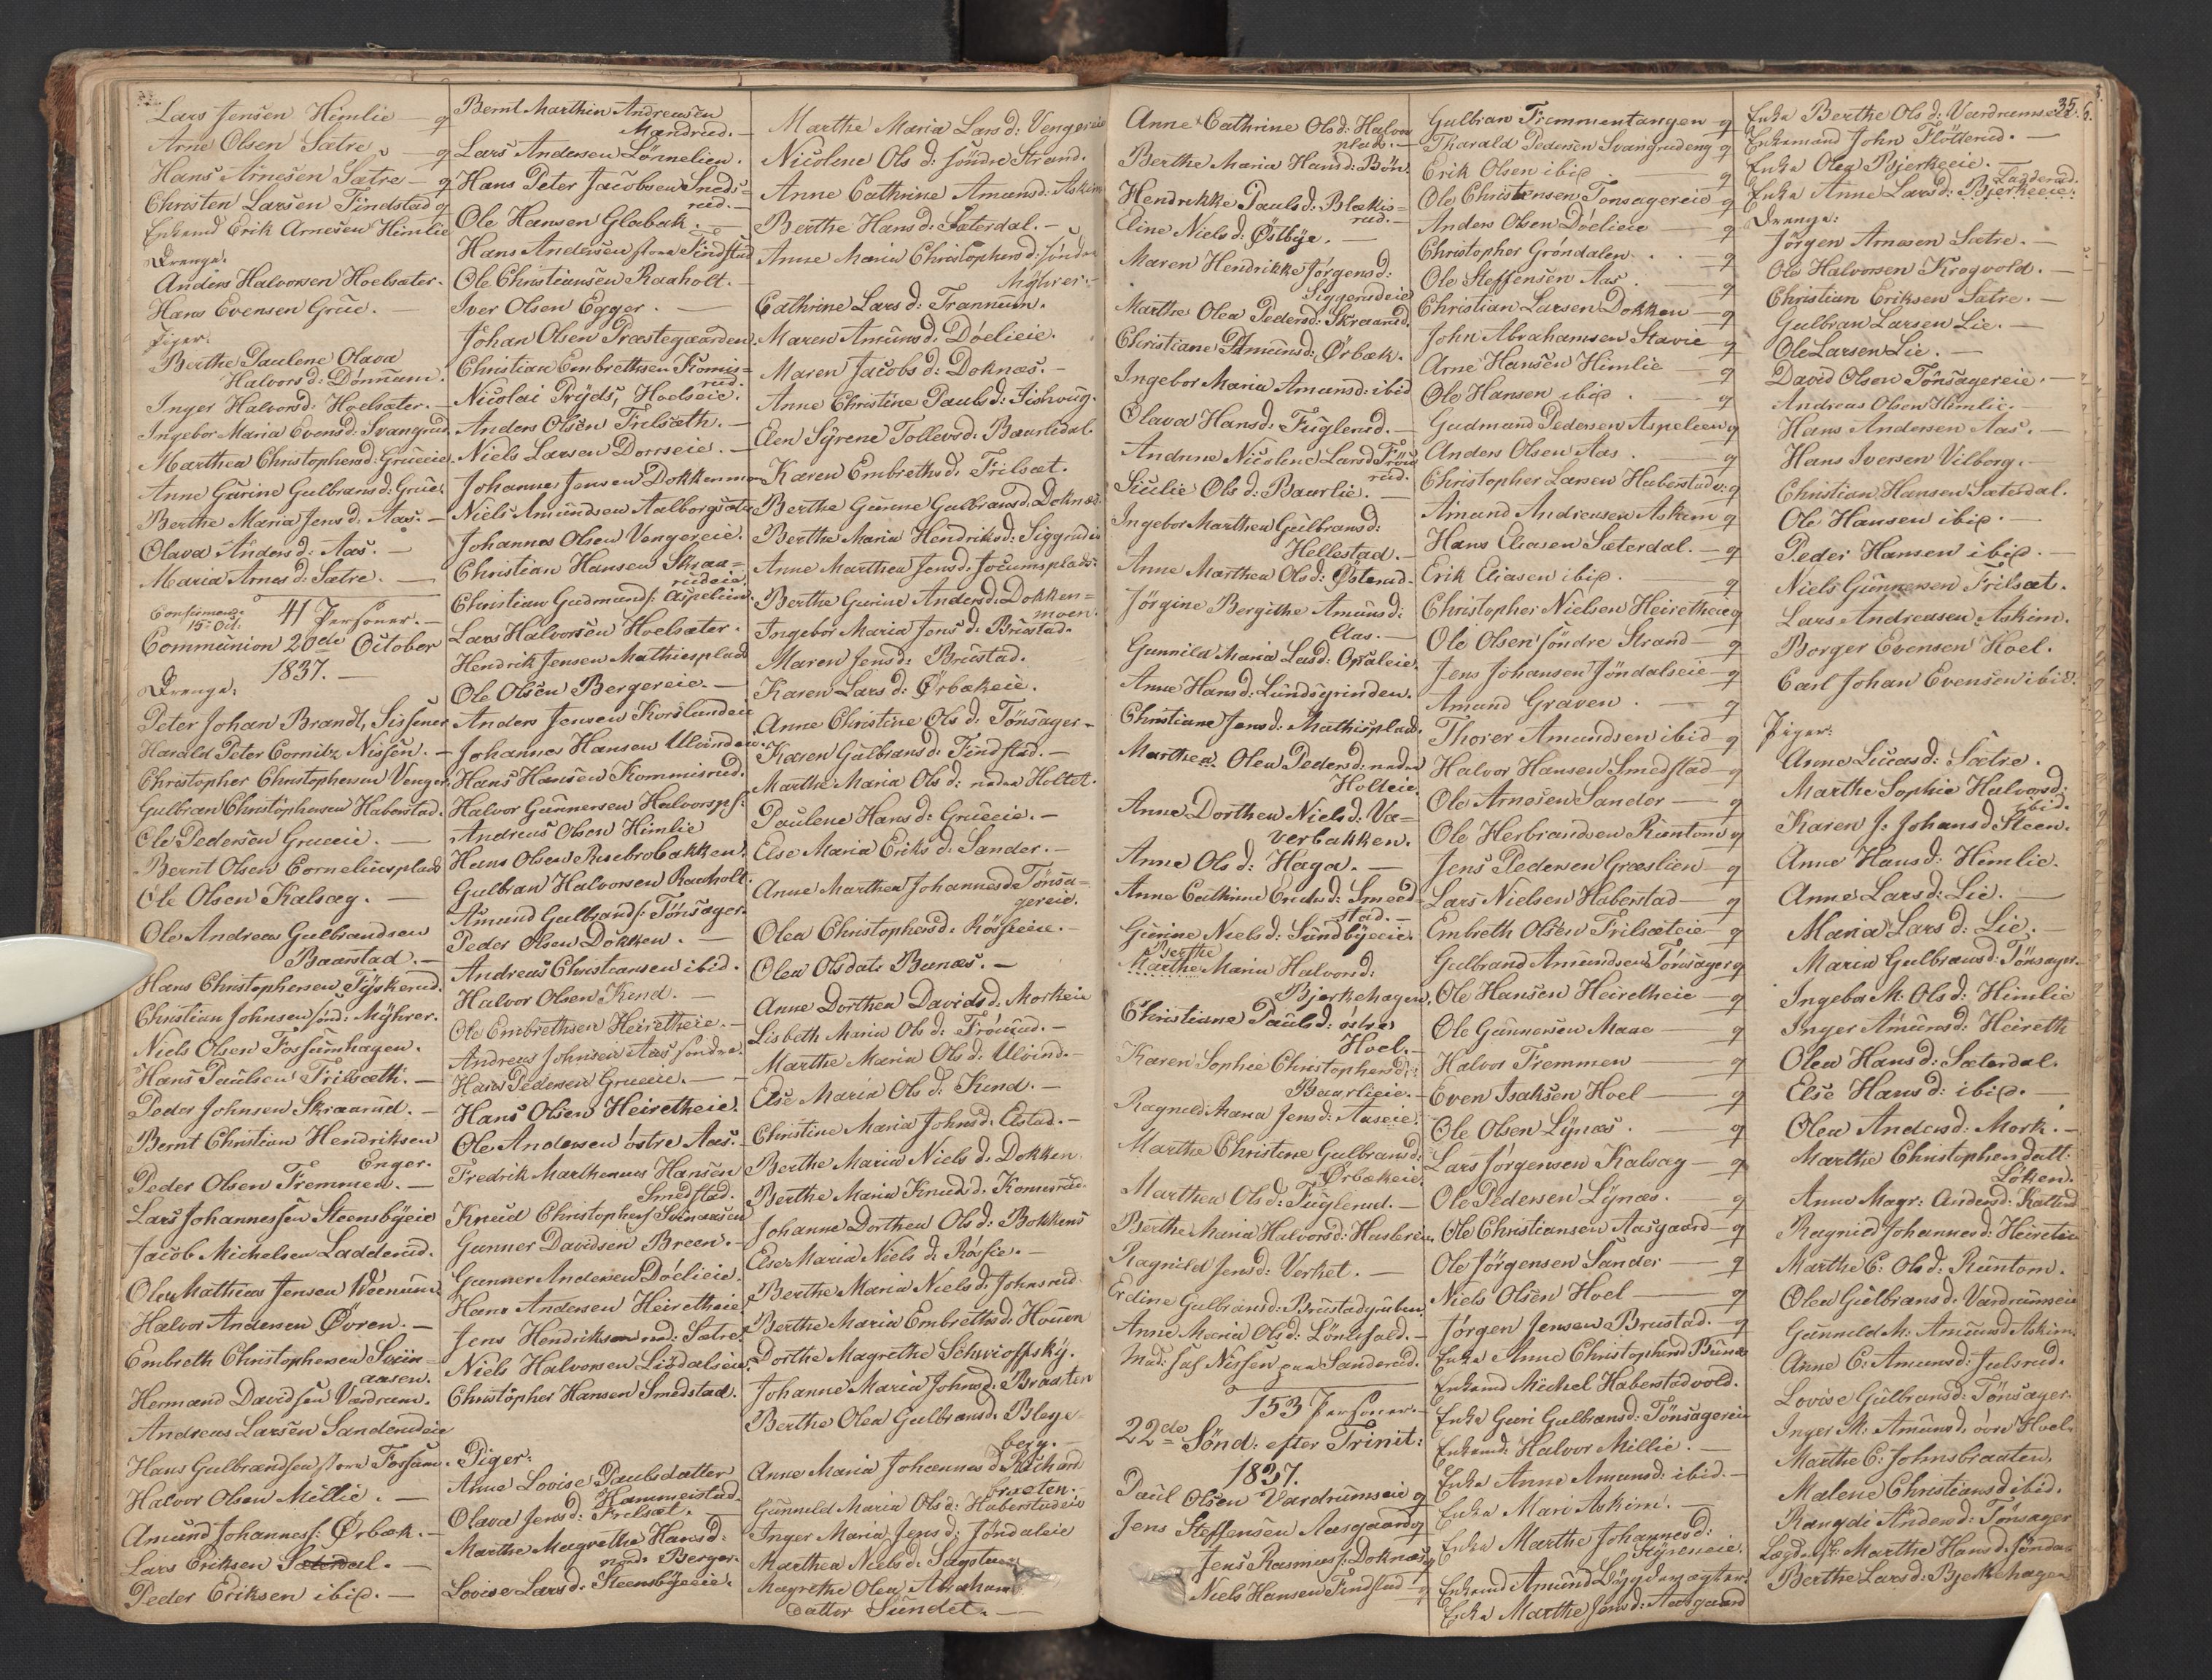 Lars Jensen Himlie — q
Arne Olsen Sætre — q
Hans Arnesen Sætre — q
Christen Larsen Findstad q
Enkemd Erik Arnesen Himlie
Drenge:
Anders Halvorsen Hoelsæter.
Hans Evensen Grue. —
Piger:
Berthe Paulene Olava
Halvorsd: Dönnum.
Inger Halvorsd: Hoelsæter. —
Ingebor Maria Evensd: Svangrud
Marthea Christophersd: Grueeie.
Anne Gurine Gulbransd: Grue.
Berthe Maria Jensd: Aas. —
Olava Andersd: Aas. —
Maria Arnesd: Sætre. —
Confirmerede 15de Oct:
41 Personer. —
Communion 20de October
1837. —
Drenge:
Peter Johan Brandt, Sissener
Harald Peter Cornitz Nissen. —
Christopher Christophersen Venger
Gulbran Christophersen Haberstad.
Ole Pedersen Grueeie. —
Bernt Olsen Corneliusplads
Ole Olsen Kalsæg. —
Ole Andreas Gulbrandsen
Baarstad. —
Hans Christophersen Tyskerud.
Christian Johnsen sönd: Myhrer.
Niels Olsen Fossumhagen.
Hans Paulsen Frilsæth. —
Peder Johnsen Skraarud. —
Bernt Christian Hendriksen
Enger.
Peder Olsen Fremmen. —
Lars Johannessen Steensbyeie
Jacob Michelsen Ladderud.
Ole Mathias Jensen
Halvor Andersen Øvren. —
Embreth Christophersen Sviin=
aasen.
Hermand Davidsen Vardrum.
Andreas Larsen Sanderudeie
Hans Gulbrandsen store Fossum.
Halvor Olsen Millie. —
Amund Johanness: Ørbæk. —
Lars Eriksen Sæterdal. —
Peder Eriksen ibid. —
Bernt Marthin Andreasen
Mandrud. —
Lars Andersen Lönnelien.
Hans Peter Jacobsen Sneds=
rud. —
Ole Hansen Glabak. —
Hans Andersen store Findstad
Ole Christiansen Raaholt. —
Iver Olsen Egger. —
Johan Olsen Præstegaarden.
Christian Embrethsen Komis=
rud.
Nicolai Pryds, Hoelseie.
Anders Olsen Frilsæth. —
Niels Larsen Dorrseie. —
Johannes Jensen Dokkenmo
Niels Amundsen Aalborgsæte
Johannes Olsen Vengereie.
Christian Hansen Skraa=
rudeie.
Christian Gudmunds: Aspelien.
Lars Halvorsen Hoelsæter.
Hendrik Jensen Mathisplads
Ole Olsen Bergereie. —
Anders Jensen Korslundeie
Johannes Hansen Ulvinderie.
Hans Hansen Kommisrud.
Halvor Gunnersen Halvorspl:
Andreas Olsen Himlie
Hans Olsen Rusebrobakken.
Gulbran Halvorsen Raaholt.
Amund Gulbrands: Tönsager.
Peder Olsen Dokken. —
Andreas Christiansen ibid.
Halvor Olsen Kind. —
Ole Embrethsen Heiretheie. —
Andreas Johnsen Aas söndre.
Hans Pedersen Grueeie. —
Hans Olsen Heiretheie.
Ole Andersen östre Aas. —
Fredrik Marthenius Hansen
Smedstad.
Knud Christophers: Sviinaasen
Gunner Davidsen Breen. —
Gunner Andersen Döelieie.
Hans Andersen Heiretheie
Jens Hendriksen ned: Sætre
Niels Halvorsen Lisdalseie.
Christopher Hansen Smedstad.
Piger:
Anne Lovise Paulsdatter
Hammerstad.
Olava Jensd: Frilsæt. —
Marthe Magrethe Hansd:
nedr Berger.
Lovise Larsd: Steensbyeeie.
Marthe Maria Larsd: Vengereie
Nicolene Olsd: söndre Strand.
Anne Cathrine Amunsd: Askim
Berthe Hansd: Sæterdal. —
Anne Maria Christophersd: söndre
Myhrer. —
Cathrine Larsd: Frannum.
Maren Amunsd: Döelieie.
Maren Jacobsd: Doknæs. —
Anne Christine Paulsd: Fishoug.
Elen Syrene Tollevsd: Baurledal.
Karen Embrethsd: Frilsæt.
Berthe Gurine Gulbransd: Doknæs
Berthe Maria Hendriksd: Siggerudeie
Anne Marthea Jensd: Jocumsplads.
Berthe Gurine Andersd: Dokken=
moen.
Ingebor Maria Jensd: Brustad.
Maren Jensd: Brustad.
Karen Larsd: Ørbækeie.
Anne Christine Olsd: Tönsager=
Karen Gulbransd: Findstad. —
Marthe Maria Olsd: nedre Holtet.
Paulene Hansd: Grueeie. —
Else Maria Eriksd: Sander. —
Anne Marthea Johannesd: Tönsa=
gereie.
Olea Christophersd: Rösseeie. —
Olea Olsdatr Bunæs. —
Anne Dorthea Davidsd: Morkeie
Lisbeth Maria Olsd: Fröisud. —
Marthe Maria Olsd: Ulvind. —
Else Maria Olsd: Kind. —
Christine Maria Johnsd: Elstad. —
Berthe Maria Nielsd: Dokken.
Berthe Maria Knudsd: Komisrud.
Johanne Dorthea Olsd: Bokkens
Else Maria Nielsd: Rösse. —
Berthe Maria Nielsd: Johnsrud.
Berthe Maria Embrethsd: Houen
Dorthe Magrethe Schwioffsky.
Johanne Maria Johnsd: Braaten
Berthe Olea Gulbransd: Bleye
berg. —
Anne Maria Johannesd: Richard
braaten. —
Gunnild Maria Olsd: Haberstadeie
Inger Maria Jensd: Jöndaleie
Marthea Nielsd: Sagstuen
Magrethe Olea Abraham
datter Sundet. —
35.
Anne Cathrine Olsd: Halvor
plads. —
Berthe Maria Hansd: Bön.
Hendrikke Paulsd: Blekis=
rud. —
Eline Nielsd: Østbye. —
Maren Hendrikke Jörgensd:
Siggerudeie
Marthe Olea Pedersd: Skraarud.
Christiane Amunsd: Ørbæk.
Ingebor Maria Amunsd: ibid
Olava Hansd: Fuglerud. —
Andrine Nicolene Larsd: Fröis
rud.
Sicilie Olsd: Baurlie. —
Ingebor Marthea Gulbransd:
Hellestad. —
Anne Marthea Olsd: Østerud.
Jörgine Bergithe Amunsd:
Aas. —
Gunnild Maria Larsd: Opsaleie.
Anne Hansd: Lundsgrinden.
Christiane Jensd: Mathisplads.
Marthea Olea Pedersd: nedre
Holteie.
Anne Dorthea Nielsd: Va=
verbakken.
Anne Olsd: Haga. —
Anne Cathrine Smed=
stad. —
Gurine Nielsd: Sundbyeeie.
Berthe
Marthe Maria Halvorsd:
Bjerkehagen.
Christiane Paulsd: östre
Hoel. —
Karen Sophie Christophersd:
Baarlieie. —
Ragnild Maria Jensd: Aaseie.
Marthe Christine Gulbransd:
Ørbækeie.
Marthea Olsd: Fuglerud. —
Berthe Maria Halvorsd: Husbreie
Ragnild Jensd: Verket. —
Erdine Gulbransd: Brustadgruben
Anne Maria Olsd: Lönlifald. —
Mad: Sal: Nissen paa Sanderud.
153 Personer. —
22de Sönd: efter Trinit:
1837.
Paul Olsen Vardrumseie q
Jens Steffensen Aasgaard q
Jens Rasmuss: Doknæs q
Niels Hansen Findstad q
Gulbran Fremmentangen q
Tharald Pedersen Svangrudeng q
Erik Olsen ibid — q
Ole Christensen Tonsagereie q
Anders Olsen Döelieie — q
Christopher Gröndalen . . — q
Ole Steffensen Aas . — q
Christian Larsen Dokken — q
John Abrahamsen Stavie q
Arne Hansen Himlie — q
Ole Hansen ibid . — q
Gudmund Pedersen Aspelien q
Anders Olsen Aas . — q
Christopher Larsen Haberstad q
Amund Andreasen Askim q
Hans Eliasen Sæterdal. — q
Erik Eliasen ibid. — q
Christopher Nielsen Heiretheie q
Ole Olsen söndre Strand — q
Jens Johansen Jöndalseie — q
Amund Graven . — q
Thorer Amundsen ibid q
Halvor Hansen Smedstad — q
Ole Arnesen Sander — q
Ole Herbrandsen Runtom q
Jens Pedersen Græslien — q
Lars Nielsen Haberstad — q
Embreth Olsen Frilsæteie q
Gulbrand Amundsen Tönsager q
Ole Hansen Heiretheie — q
Ole Gunnersen Maae — q
Halvor Fremmen — q
Even Isaksen Hoel — q
Ole Olsen Lynæs . — q
Lars Jörgensen Kalsæg — q
Ole Pedersen Lynæs. — q
Ole Christiansen Aasgaard — q
Ole Jörgensen Sander — q
Niels Olsen Hoel — q
Jörgen Jensen Brustad. — q
Enke Anne Christophersd: Bunæs
Enkemd Michel Haberstadvold.
Enke Guri Gulbransd: Tönsagereie
Enkemd: Halvor Millie. —
Enke Anne Amunsd: ibid. —
Enke Mari Askim. —
Enke Marthe Johannesd:
Styreneie.
Enkemd Amund
Enke Marthe Jensd: Aasgaard
Enke Berthe Olsd: Vardrumseie.
Enkemand John Flötterud. —
Enke Olea Bjerkeeie. —
Ladderud.
Enke Anne Larsd: Bjerkeeie.
Drenge:
Jörgen Arnesen Sætre. —
Ole Halvorsen Krogvold. —
Christian Eriksen Sætre. —
Gulbran Larsen Lie. —
Ole Larsen Lie. —
David Olsen Tönsagereie. —
Andreas Olsen Himlie. —
Hans Andersen Aas. —
Hans Iversen Vilborg. —
Christian Hansen Sæterdal.
Ole Hansen ibid. —
Peder Hansen ibid. —
Niels Gunnersen Frilsæt.
Lars Andreasen Askim.
Borger Evensen Hoel.
Carl Johan Evensen ibid.
Piger:
Anne Lucasd: Sætre.
Marthe Sophie Halvorsd:
ibid.
Karen J: Johansd: Steen.
Anne Hansd: Himlie.
Anne Larsd: Lie. —
Maria Larsd: Lie.
Maria Gulbransd: Tönsager.
Ingebor M: Olsd: Himlie
Inger Amunsd: Heireth
Olea Hansd: Sæterdal.
Else Hansd: ibid. —
Olea Andersd: Mork. —
Marthe Christophersdatt:
Löken.
Anne Magr: Andersd: Kalland
Ragnild Johannesd: Heireteie
Marthe C: Olsd: Runtom.
Olea Gulbransd: Vardrumseie
Gunnild M: Amunsd: Askim.
Anne C: Amunsd: Julsrud.
Lovise Gulbransd: Tönsager.
Inger M: Amunsd: övre Hoel.
Marthe C: Johnsbraaten.
Malene Christiansd: ibid.
Rangdi Andersd: Tönsager
Marthe Hansd: söndre
Berthe Larsd: Bjerkehagen